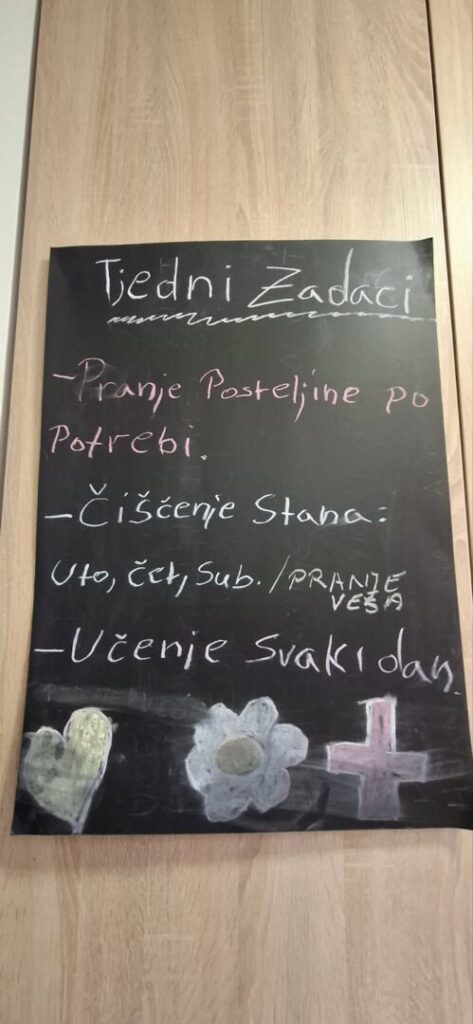 Tjedni Zadaci
-Pranje Posteljine po
Potrebi.
-Čišćenje Stana:
Uto, čet, Sub. /PRANJE
VEŠA
-Učenje Svaki dan.